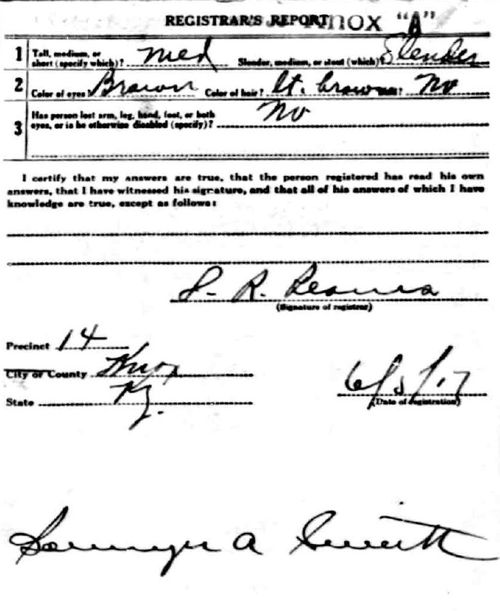 REGISTRAR'S REPORT KNOX "A"
1 Tall, medium, or short (specify which)? Med Slender, medium, or stout (which)? Slender
2 Color of eyes? Brown Color of hair? Lt. brown ? No
3 Has person lost arm, leg, hand, foot, or both eyes, or is he otherwise disabled (specify)? No
I certify that my answers are true, that the person registered has read his own
answers, that I have witnessed his signature, and that all of his answers of which I have
knowledge are true, except as follows:
R.
(Signature of registrar)
Precinct 14
City or County Knox
State Ky.
6/5/17
(Date of registration)
A